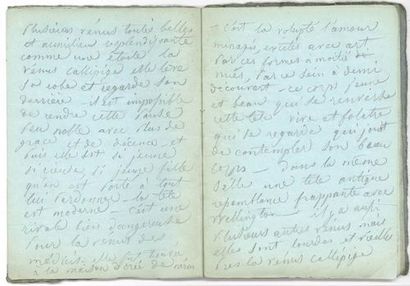 Plusieures vénus toutes belles
et au milieu resplendissante
comme une étoile la
vénus callipige elle lève
sa robe et regarde son
derrière il est impossible
de rendre cette pause
peu noble avec plus de
grace et de décence et
puis elle est si jeune
si rieuse si jeune fille
qu'on est porté à tout
lui pardonner la tête
est moderne C'est une
rivale bien dangereuse
pour la vénus des
médicis elle fut trouvée
à la maison dorée de néron
C'est la volupté l'amour
excités avec art
par ces formes à moitié
nues, par ce sein à demi
découvert ce corps jeune
et beau qui se renverse
cette tête vive et folatre
qui se regarde qui jouit
de contempler son beau
corps Dans la même
salle une tête antique
ressemblance frappante avec
Wellington il y a aussi
plusieurs autres vénus mais
elles sont lourdes et vieilles
près la vénus callipige